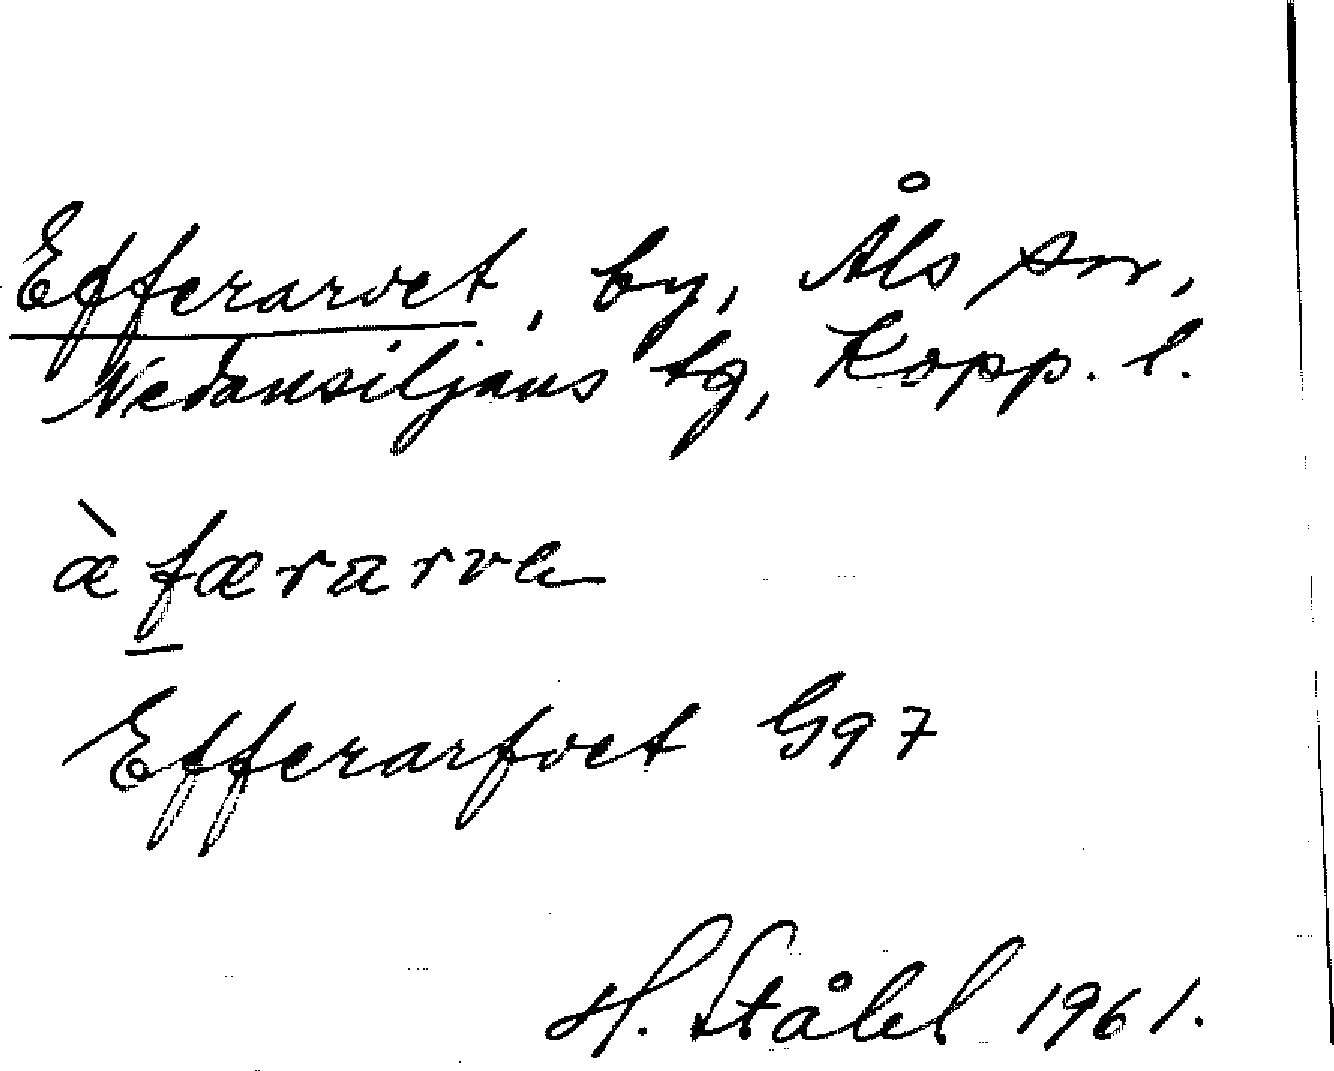 Efferarvet, by, Åls sn,
Nedansiljans tg, Kopp. l.
æ̀færarvə
Efferarfvet G97
H. Ståhl 1961.